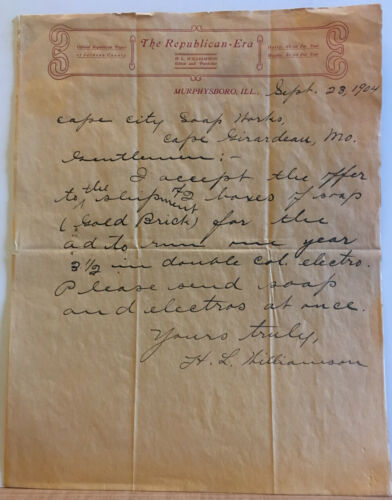 Official Republican Paper
of Jackson County
The Republican-Era
H. L. WILLIAMSON
Editor and Publisher
MURPHYSBORO, ILL., Sept. 23, 1904
Cape City Soap Works,
Cape Girardeau, Mo.
Gentlemen:-
I accept the offer
to, the shipment of 2 boxes of soap
(Gold Brick) for the
ad to run one year
3 1/2 in double col. electro.
Please send soap
and electros at once.
Yours truly,
H. L. Williamson